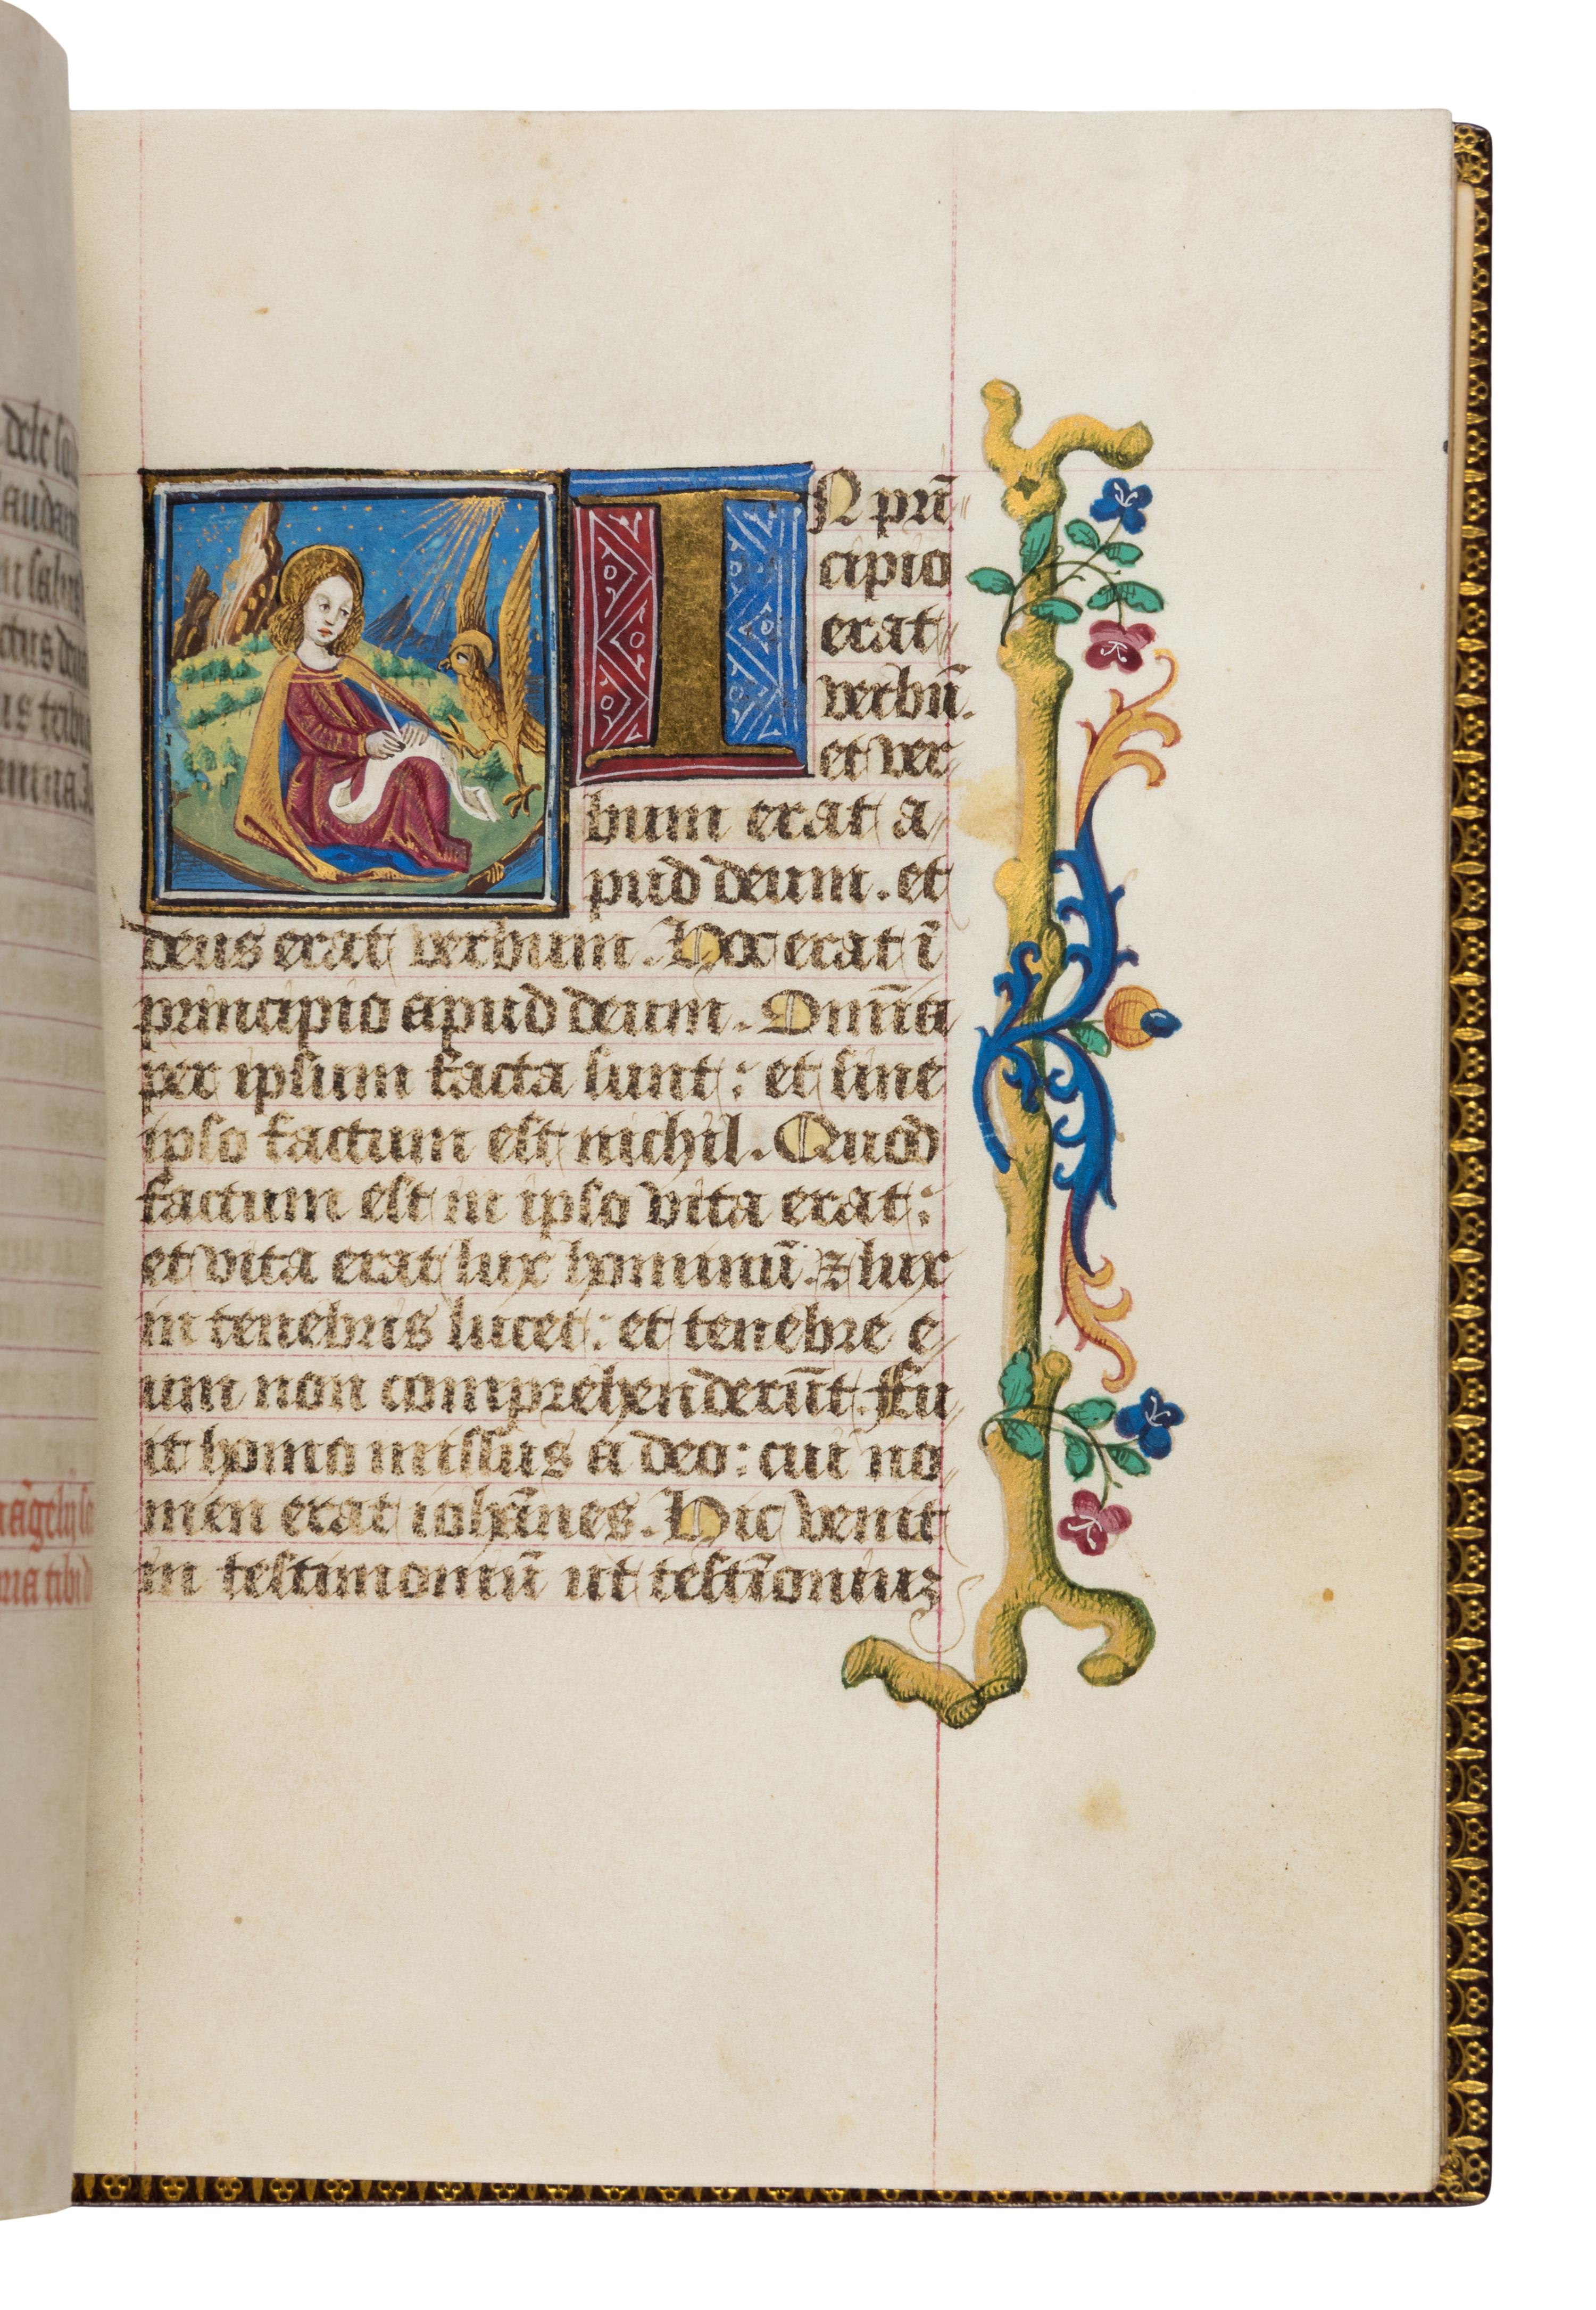 dele
laudam
ctus
IN prī
cipio
erat
verbū.
et ver
bum erat a
pud deum. et
deus erat verbum. Hoc erat ī
principio apud deum. Omīa
per ipsum facta sunt: et sine
ipso factum est nichil. Quod
factum est in ipso vita erat:
et vita erat lux hominū. ⁊ lux
in tenebris lucet: et tenebre e
um non comprehenderūt. Fu
it homo missus a deo: cui no
men erat iohānes. Hic venit
in testimoniū ut testīoniuꝫ
tibi